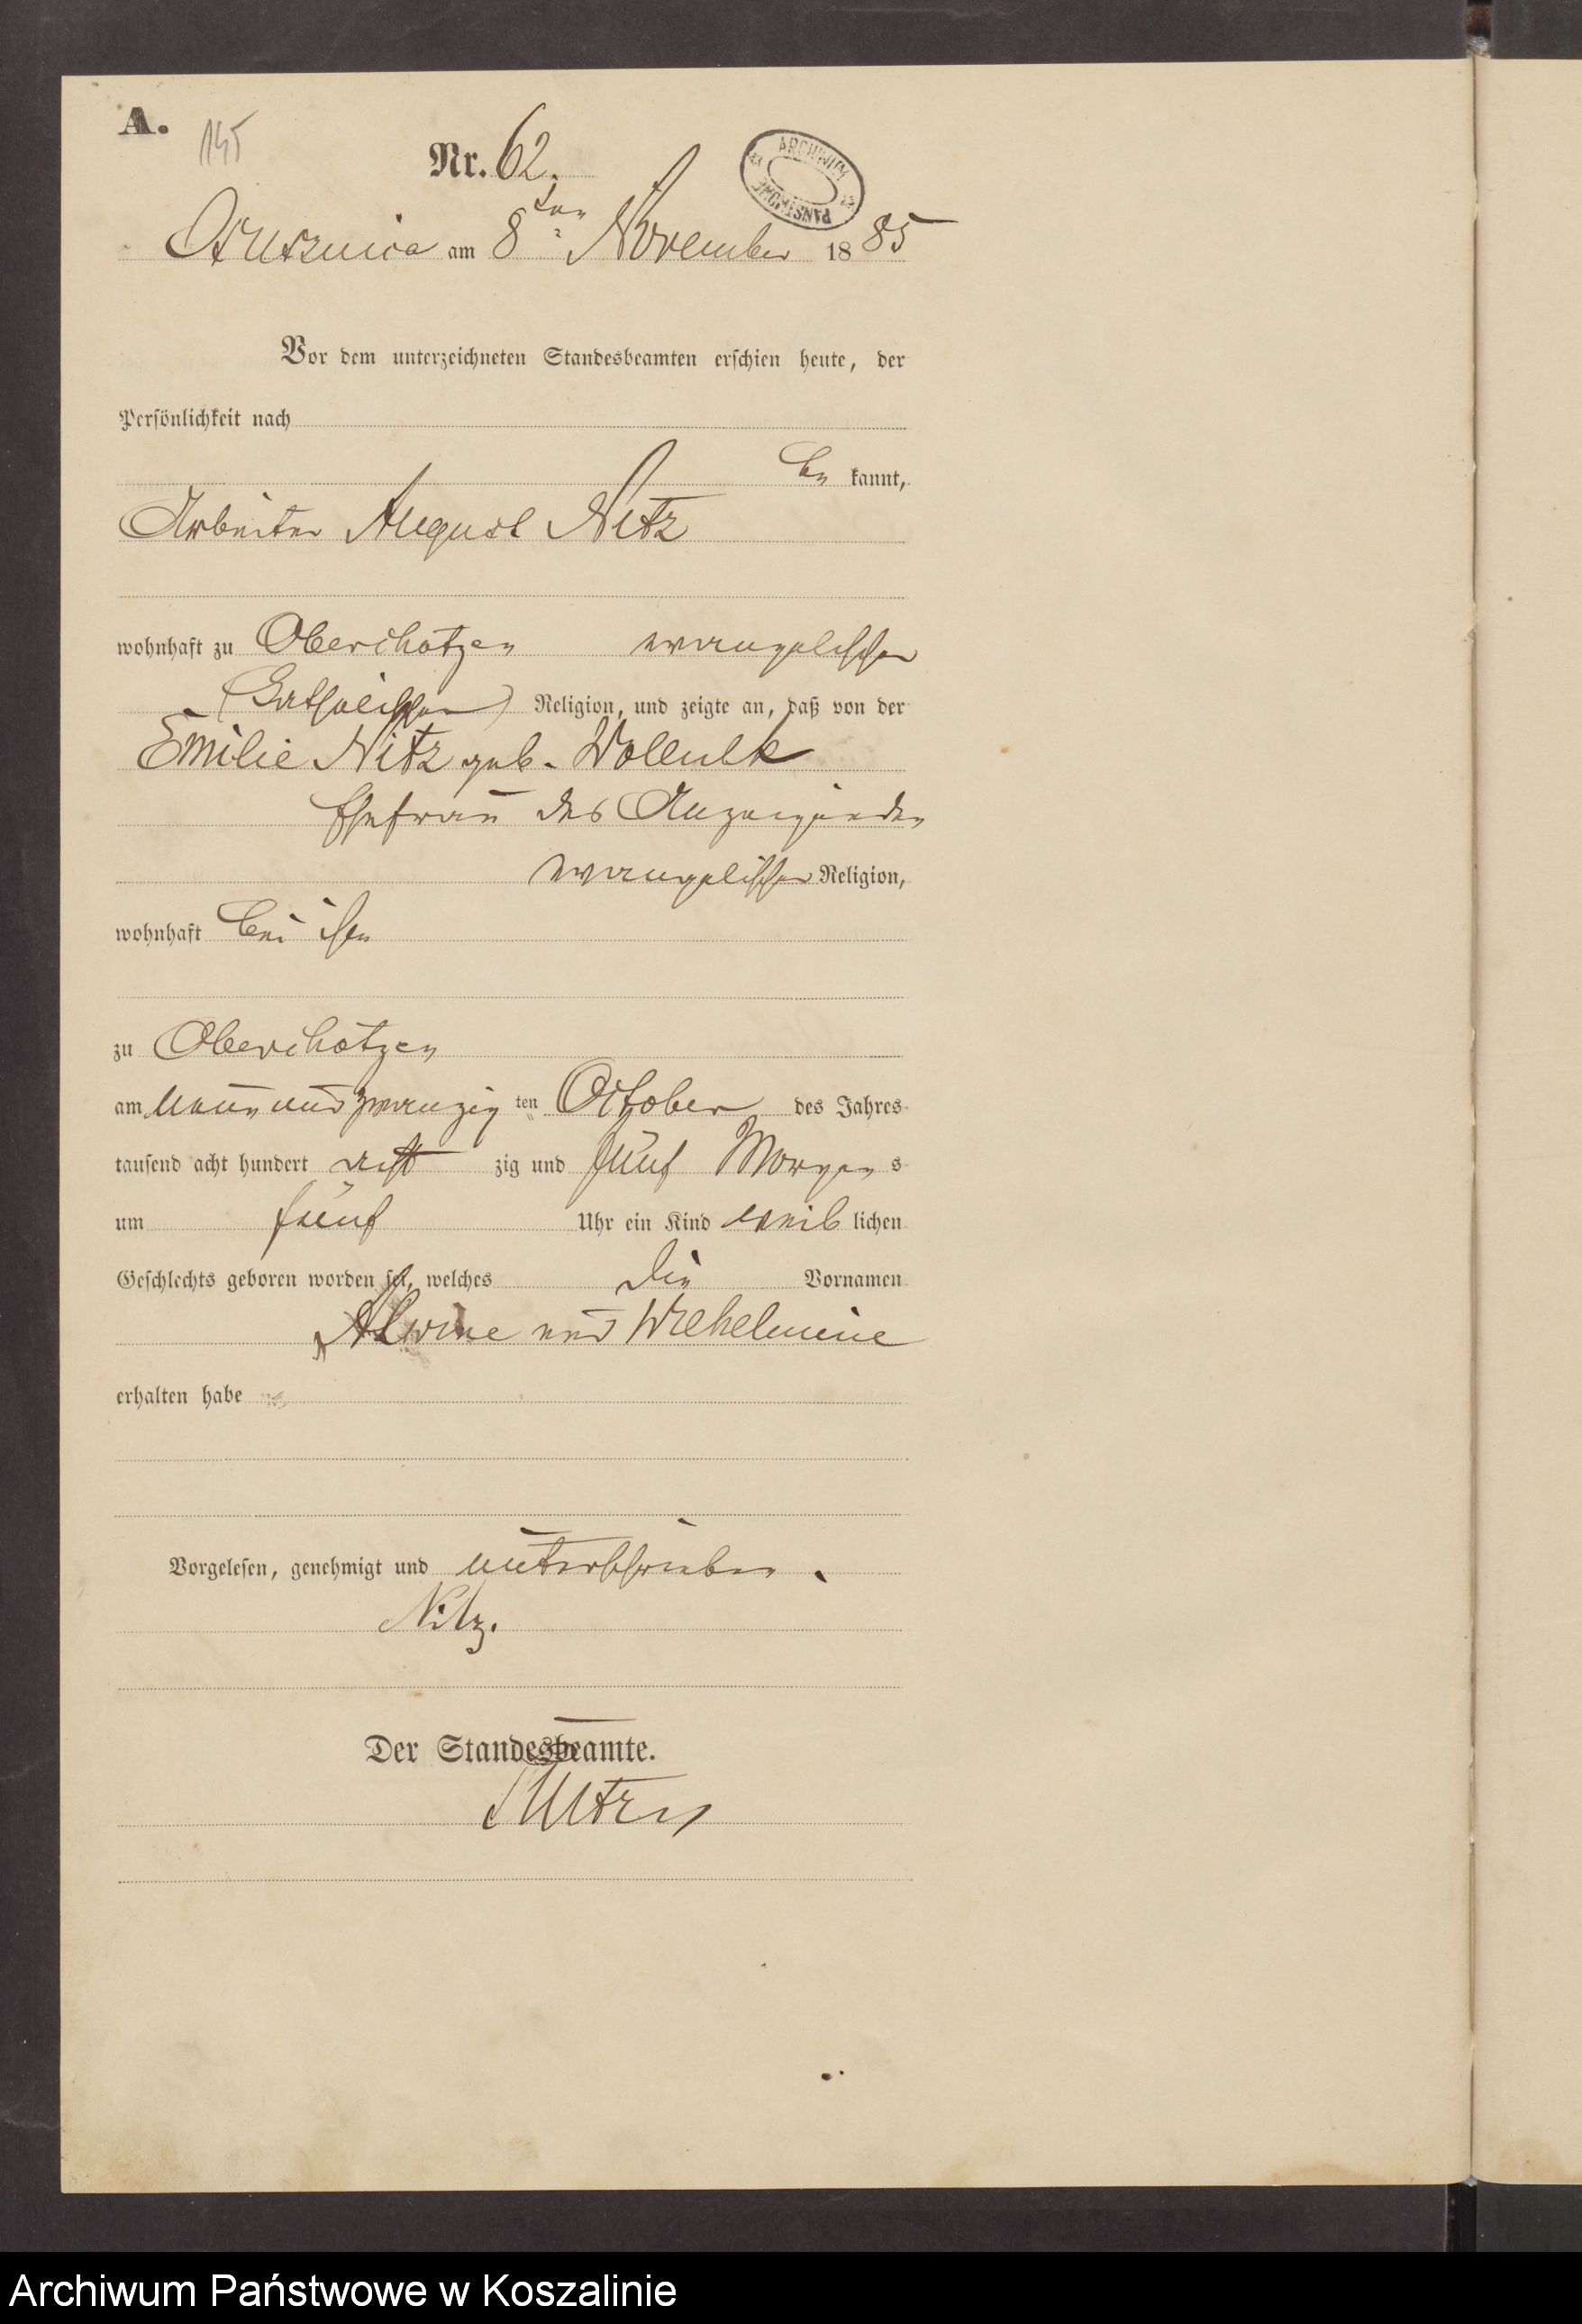 A.
145
Nr. 62.
ARCHIWUM PAŃSTWOWE
Osusznica am 8ten November 1885
Vor dem unterzeichneten Standesbeamten erschien heute, der
Persönlichkeit nach
be kannt,
Arbeiter August Nitz
wohnhaft zu Oberchotzen evangelischer
(Katholischer) Religion, und zeigte an, daß von der
Emilie Nitz geb.
Ehefrau des Anzeigenden
evangelischer Religion,
wohnhaft bei ihm
zu Oberchotzen
am neun und zwanzig ten October des Jahres
tausend acht hundert acht zig und fünf Morgen s
um fünf Uhr ein Kind weib lichen
Geschlechts geboren worden sei, welches die Vornamen
Alwine und Wilhelmine
erhalten habe
Vorgelesen, genehmigt und unterschrieben.
Nitz.
Der Standesbeamte.
Archiwum Państwowe w Koszalinie